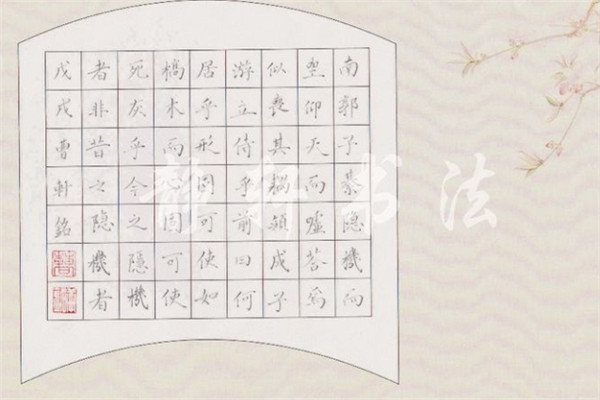 南郭子綦隐機而
坐仰天而嘘荅焉
似喪其耦顏成子
游立侍乎前曰何
居乎形固可使如
槁木而心固可使
死灰乎今之隐機
者非昔之隐機者
戊戌曹軒銘
静轩书法